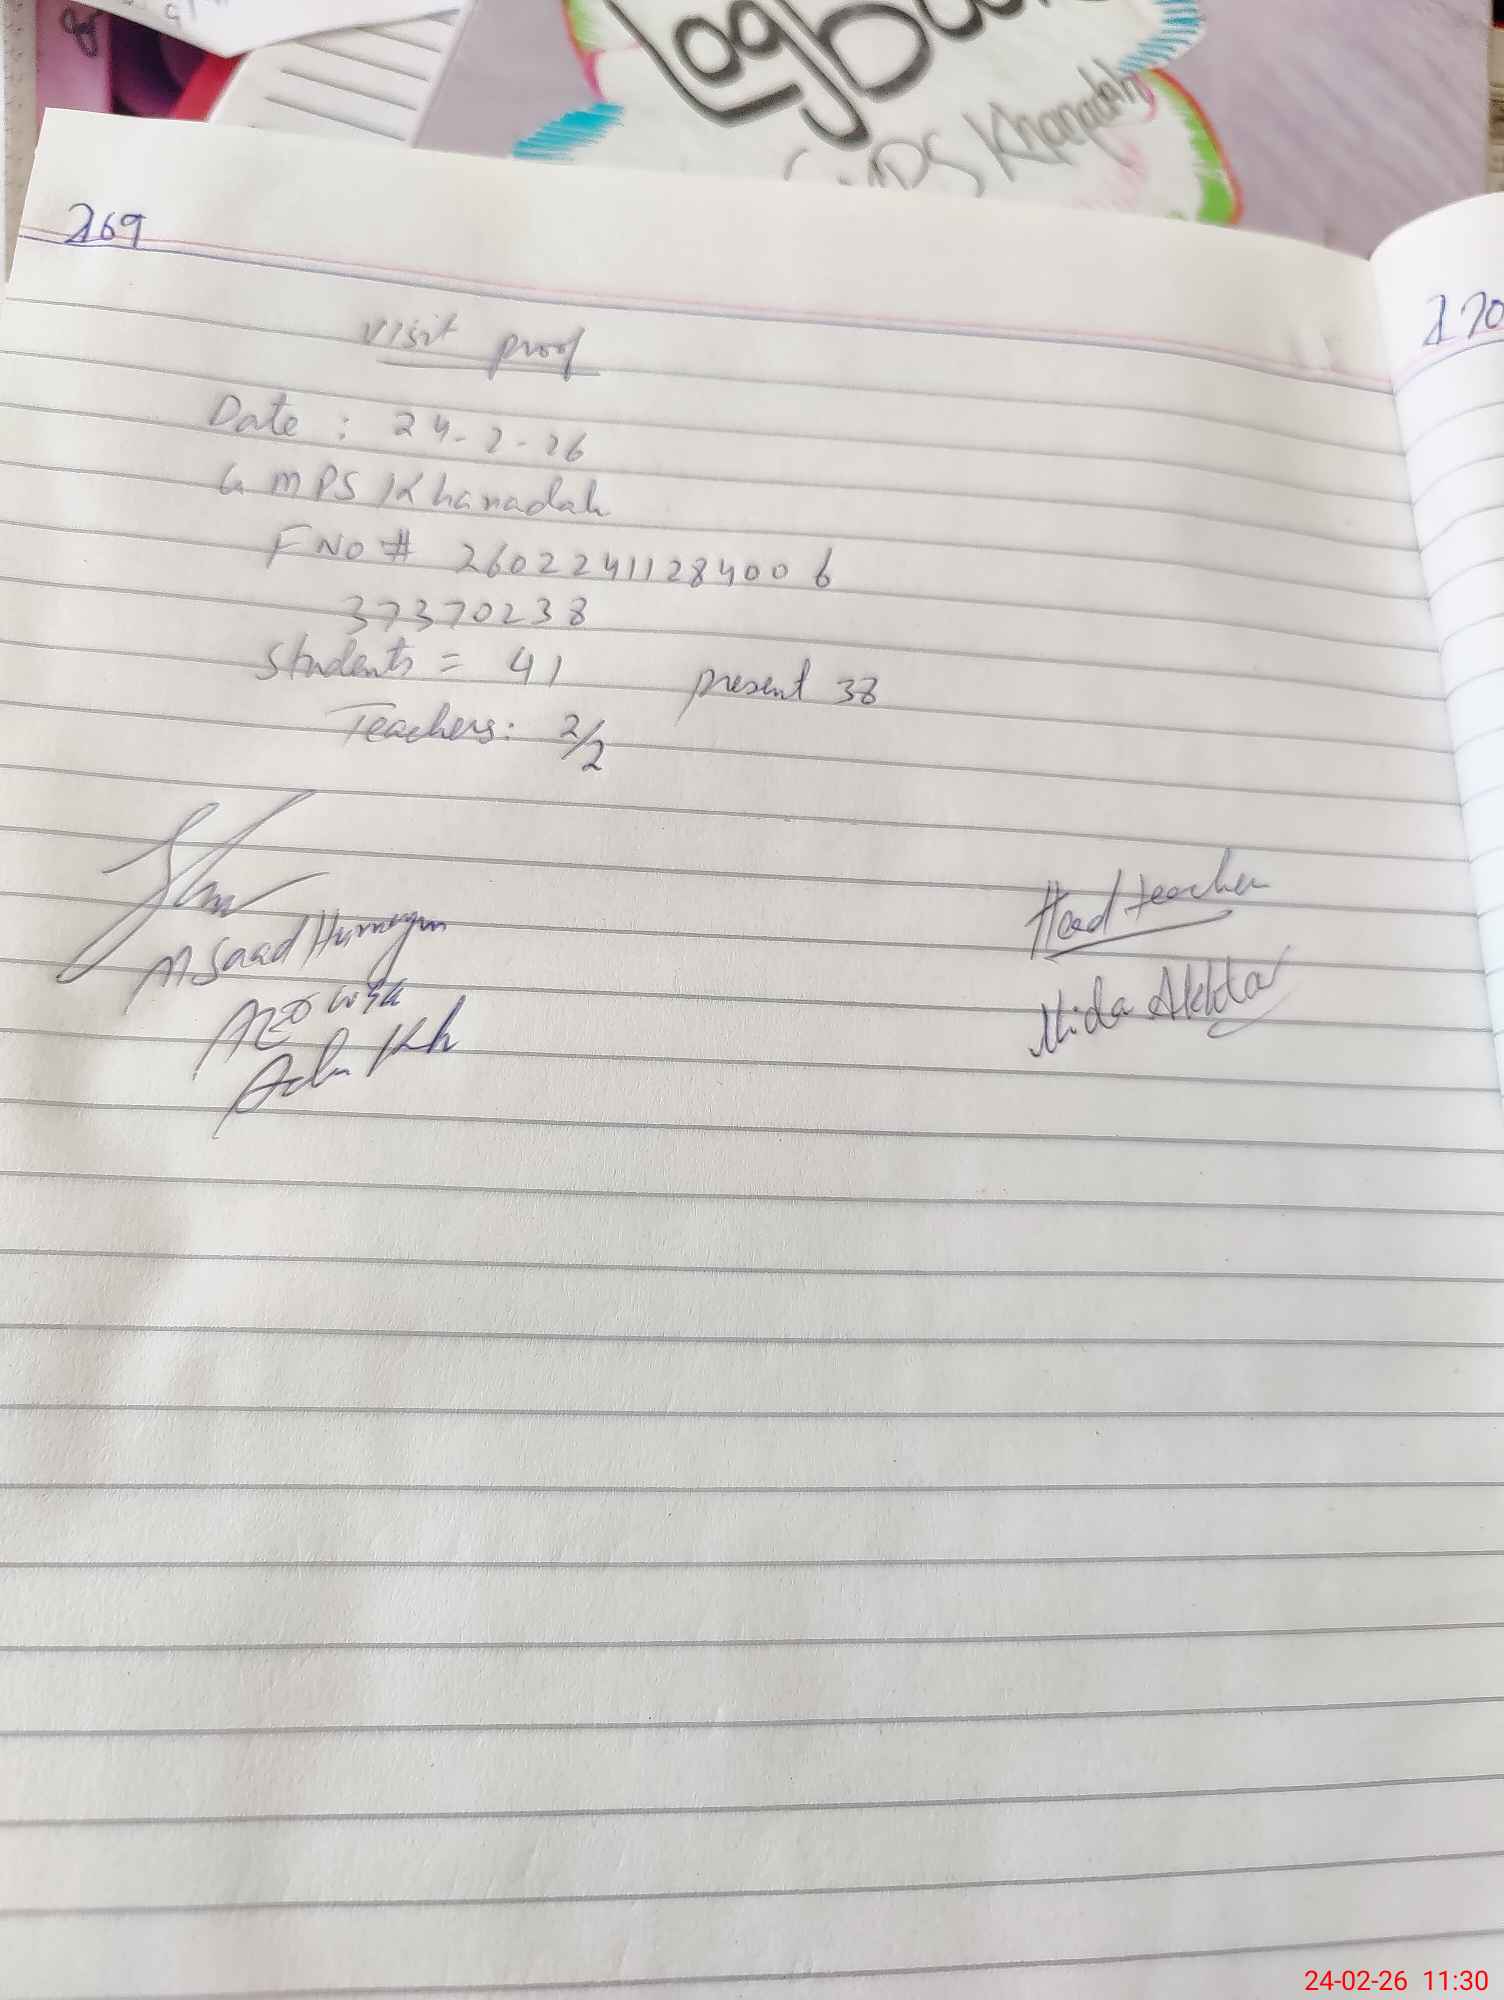 Logbook
GMPS Khanadah
269
270
Visit proof
Date : 24-2-26
G MPS Khanadah
F NO # 26022411284006
37370238
Students = 41 present 38
Teachers: 2/2
M Saad Humayun
AEO
Head teacher
Nida Akhtar
24-02-26 11:30